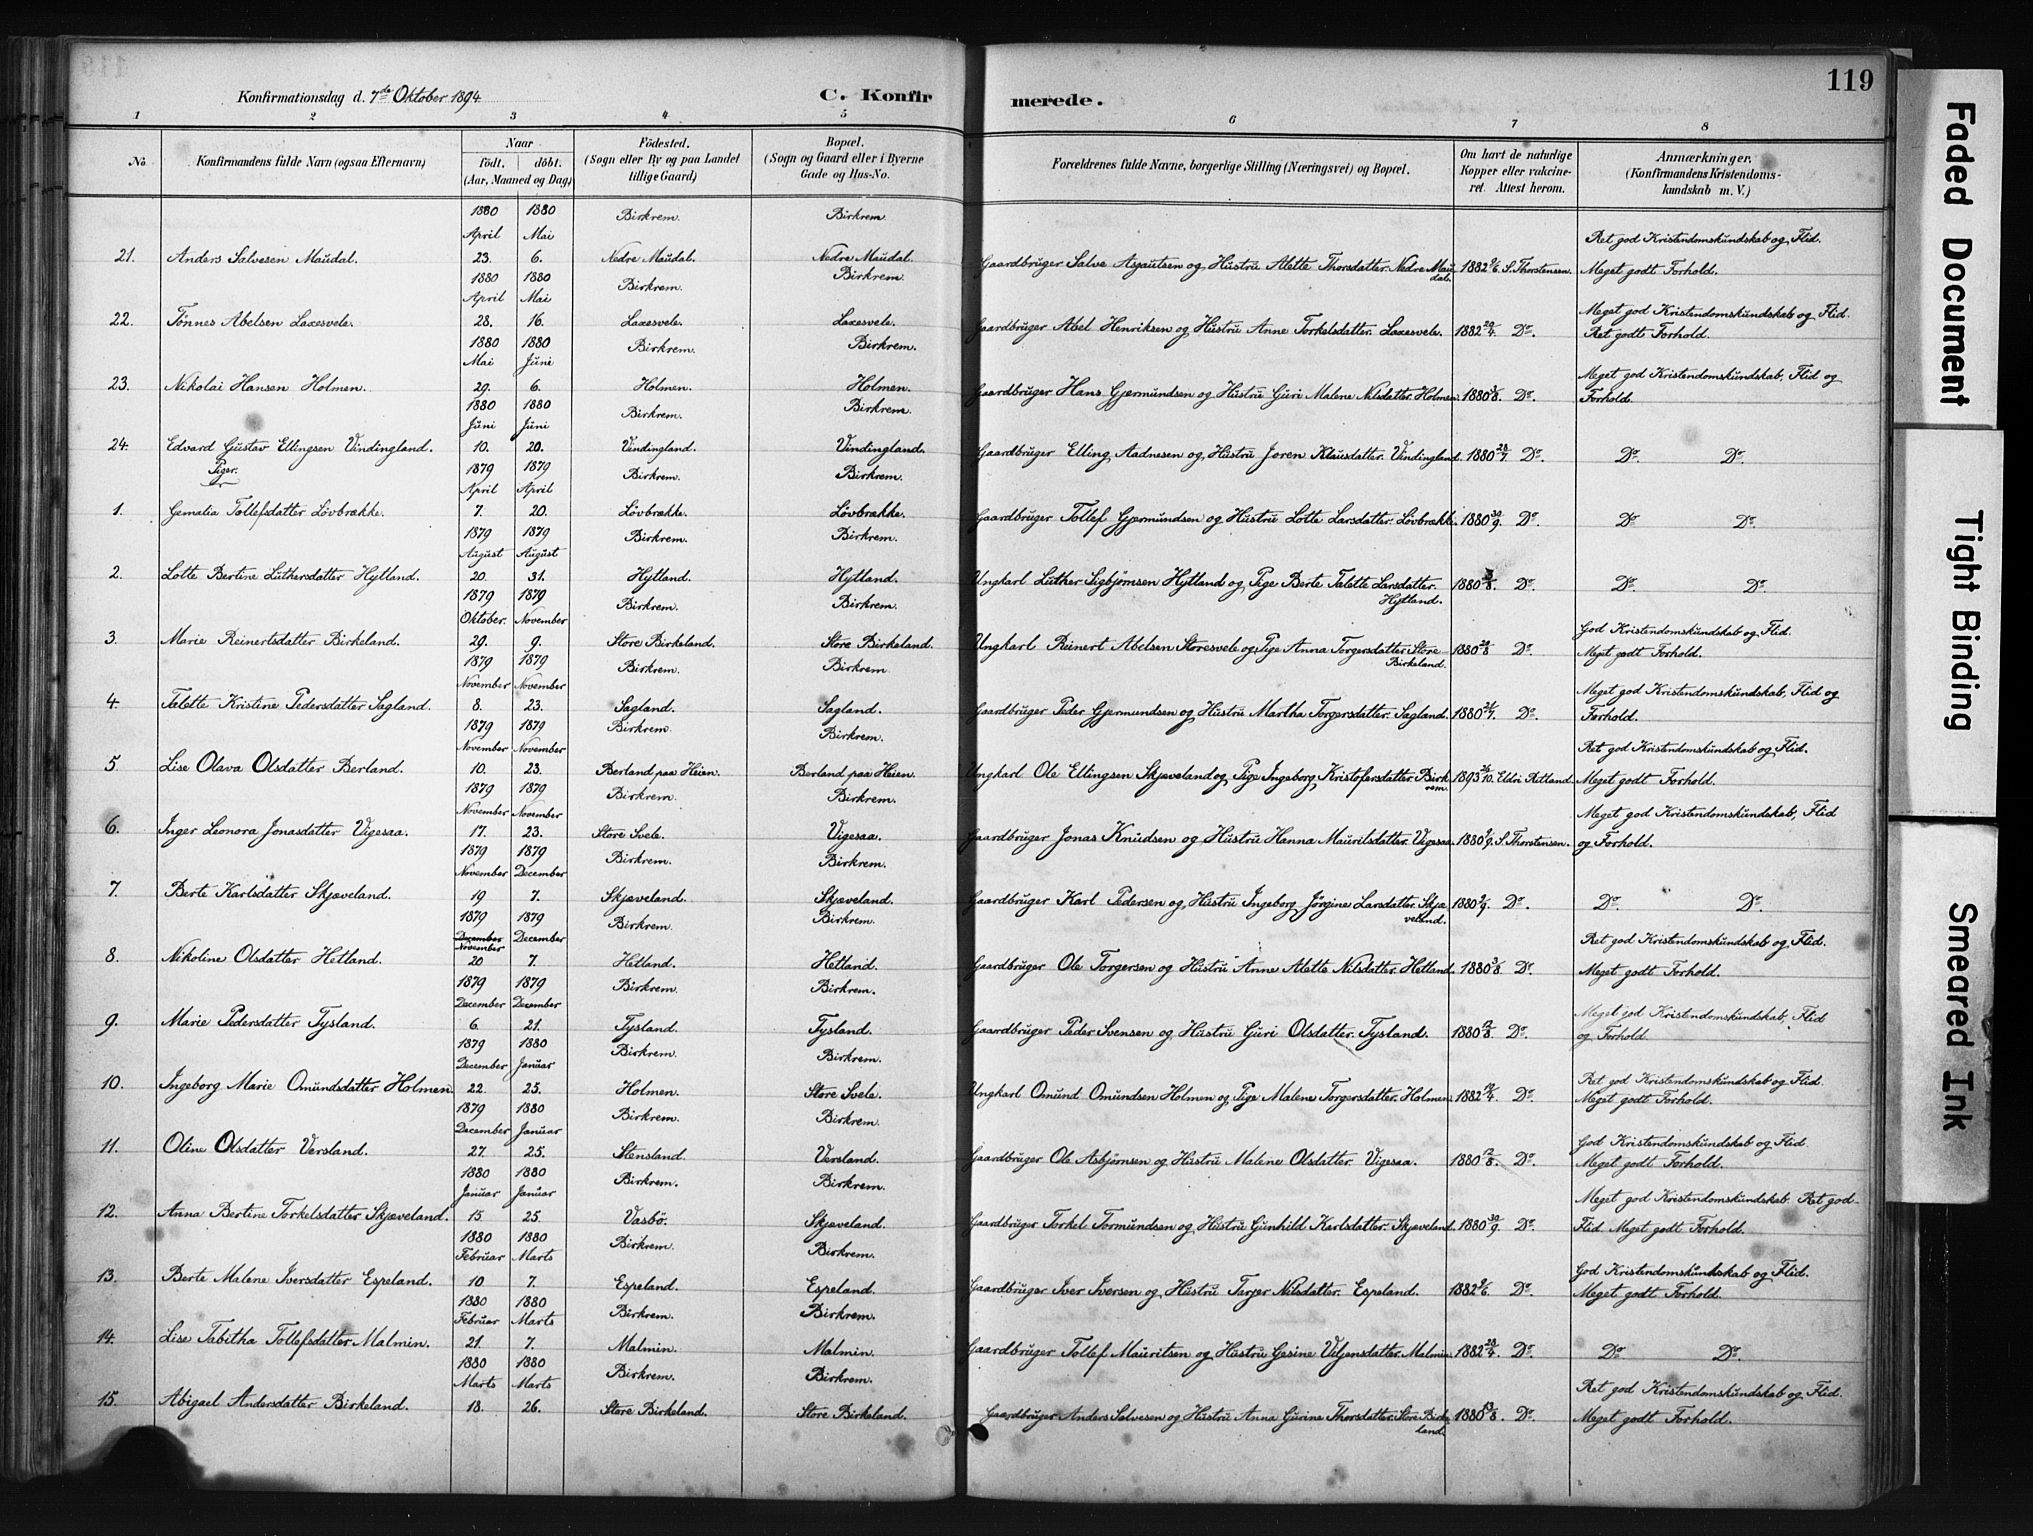 119
Konfirmationsdag d. 7de Oktober 1894
C. Konfir merede.
1 2 3 4 5 6 7 8
No
Konfirmandens fulde Navn (ogsaa Efternavn)
Naar
födt, döbt.
(Aar, Maaned og Dag)
Födested.
(Sogn eller By og paa Landet tillige Gaard)
Bopæl.
(Sogn og Gaard eller i Byerne Gade og Hus-No.
Forældrenes fulde Navne, borgerlige Stilling (Næringsvei) og Bopæl.
Om havt de naturlige Kopper eller vakcineret. Attest herom.
Anmærkninger,
(Konfirmandens Kristendomskundskab m. V.)
21. Anders Salvesen Maudal. 1880 April 23. 1880 Mai 6. Birkrem. Nedre Maudal. Birkrem. Nedre Maudal. Gaardbruger Salve Asgautsen og Hustru Alette Thorsdatter. Nedre Maudal. 1882 9/6. S. Thorstensen. Ret god Kristendomskundskab og Flid. Meget godt Forhold.
22. Tönnes Abelsen Laxesvele. 1880 April 28. 1880 Mai 16. Birkrem. Laxesvele. Birkrem. Laxesvele. Gaardbruger Abel Henriksen og Hustru Anne Torkelsdatter. Laxesvele. 1882 29/4. Do. Meget god Kristendomskundskab og Flid. Ret godt Forhold.
23. Nikolai Hansen Holmen. 1880 Mai 29. 1880 Juni 6. Birkrem. Holmen. Birkrem. Holmen. Gaardbruger Hans Gjermundsen og Hustru Guri Malene Nilsdatter. Holmen. 1880 3/8. Do. Meget god Kristendomskundskab, Flid og Forhold.
24. Edvard Gustav Ellingsen Vindingland. 1880 Juni 10. 1880 Juni 20. Birkrem. Vindingland. Birkrem. Vindingland. Gaardbruger Elling Aadnesen og Hustru Joren Klausdatter. Vindingland. 1880 28/7. Do. Do. Do.
Piger.
1. Gemalia Tollefsdatter Lövbrække. 1879 April 7. 1879 April 20. Birkrem. Lövbrække. Birkrem. Lövbrække. Gaardbruger Tollef Gjermundsen og Hustru Lotte Larsdatter. Lövbrække. 1880 30/9. Do. Do. Do.
2. Lotte Bertine Luthersdatter Hytland. 1879 August 20. 1879 August 31. Birkrem. Hytland. Birkrem. Hytland. Ungkarl Luther Sigbjörnsen Hytland og Pige Berte Talette Larsdatter. Hytland. 1880 3/8. Do. Do. Do.
3. Marie Reinertsdatter Birkeland. 1879 Oktober. 29. 1879 November 9. Birkrem. Store Birkeland. Birkrem. Store Birkeland. Ungkarl Reinert Abelsen Storesvele og Pige Anna Torgersdatter. Store-Birkeland. 1880 /8 Do. God Kristendomskundskab og Flid. Meget godt Forhold.
4. Talette Kristine Pedersdatter Sagland. 1879 November 8. 1879 November 23. Birkrem. Sagland. Birkrem Sagland. Gaardbruger Peder Gjermundsen og Hustru Martha Torgersdatter. Sagland. 1880 21/7. Do. Meget god Kristendomskundskab, Flid og Forhold.
5. Lise Olava Olsdatter Berland. 1879 November 10. 1879 November 23. Birkrem. Berland paa Heien. Birkrem. Berland paa Heien. Ungkarl Ole Ellingsen Skjæveland og Pige Ingeborg Kristofersdatter. Birkrem. 1893 /10. Eldri Retland. Ret god Kristendomskundskab og Flid. Meget godt Forhold.
6. Inger Leonora Jonasdatter Vigesaa. 1879 November 17. 1879 November 23. Birkrem. Store Svele. Birkrem. Vigesaa. Gaardbruger Jonas Knudsen og Hustru Hanna Mauritsdatter. Vigesaa. 1880 9/9. S. Thorstensen. Meget god Kristendomskundskab, Flid og Forhold.
7. Berte Karlsdatter Skjæveland. 1879 November 19 1879 December 7. Birkrem. Skjæveland. Birkrem. Skjæveland. Gaardbruger Karl Pedersen og Hustru Ingeborg Jörgine Larsdatter. Skjæveland. 1880 9/9. Do. Do. Do.
8. Nikoline Olsdatter Hetland. 1879 December November 20 1879 December 7. Birkrem. Hetland. Birkrem. Hetland. Gaardbruger Ole Torgersen og Hustru Anne Alette Nilsdatter. Hetland. 1880 3/8. Do. Ret god Kristendomskundskab og Flid. Meget godt Forhold.
9. Marie Pedersdatter Tysland. 1879 December 6. 1879 December 21. Birkrem. Tysland. Birkrem. Tysland. Gaardbruger Peder Svensen og Hustru Guri Olsdatter. Tysland. 1880 12/8. Do. Meget god Kristendomskundskab, Flid og Forhold.
10. Ingeborg Marie Omundsdatter Holmen. 1879 December 22. 1880 Januar 25. Birkrem. Holmen. Birkrem. Store Svele. Ungkarl Omund Omundsen Holmen og Pige Malene Torgersdatter. Holmen. 1882 19/4. Do. Ret god Kristendomskundskab og Flid. Meget godt Forhold.
11. Oline Olsdatter Versland. 1879 December 27. 1880 Januar 25. Birkrem. Stensland. Birkrem. Versland. Gaardbruger Ole Asbjörnsen og Hustru Malene Olsdatter. Vigesaa. 1880 12/8. Do. God Kristendomskundskab og Flid. Meget godt Forhold.
12. Anna Bertine Torkelsdatter Skjæveland. 1880 Januar 15. 1880 Januar 25. Birkrem. Vasbö. Birkrem. Skjæveland. Gaardbruger Torkel Tormundsen og Hustru Gunhild Karlsdatter. Skjæveland. 1880 30/9. Do. Meget god Kristendomskundskab. Ret god Flid. Meget godt Forhold.
13. Berte Malene Iversdatter Espeland. 1880 Februar 10 1880 Marts 7. Birkrem. Espeland. Birkrem. Espeland. Gaardbruger Iver Iversen og Hustru Tarjer Nilsdatter. Espeland. 1882 9/6. Do. God Kristendomskundskab og Flid. Meget godt Forhold.
14. Lise Tabitha Tollefsdatter Malmin. 1880 Februar 21. 1880 Marts 7. Birkrem. Malmin. Birkrem. Malmin. Gaardbruger Tollef Mauritsen og Hustru Gesine Vitjensdatter. Malmin. 1882 28/4. Do. Do. Do.
15. Abigael Andersdatter Birkeland. 1880 Marts 18. 1880 Marts 26. Birkrem. Store Birkeland. Birkrem. Store Birkeland. Gaardbruger Anders Salvesen og Hustru Anna Gurine Thorsdatter. Store Birkeland. 1880 13/8. Do. Ret god Kristendomskundskab og Flid. Meget godt Forhold.
Faded Document
Tight Binding
Smeared Ink